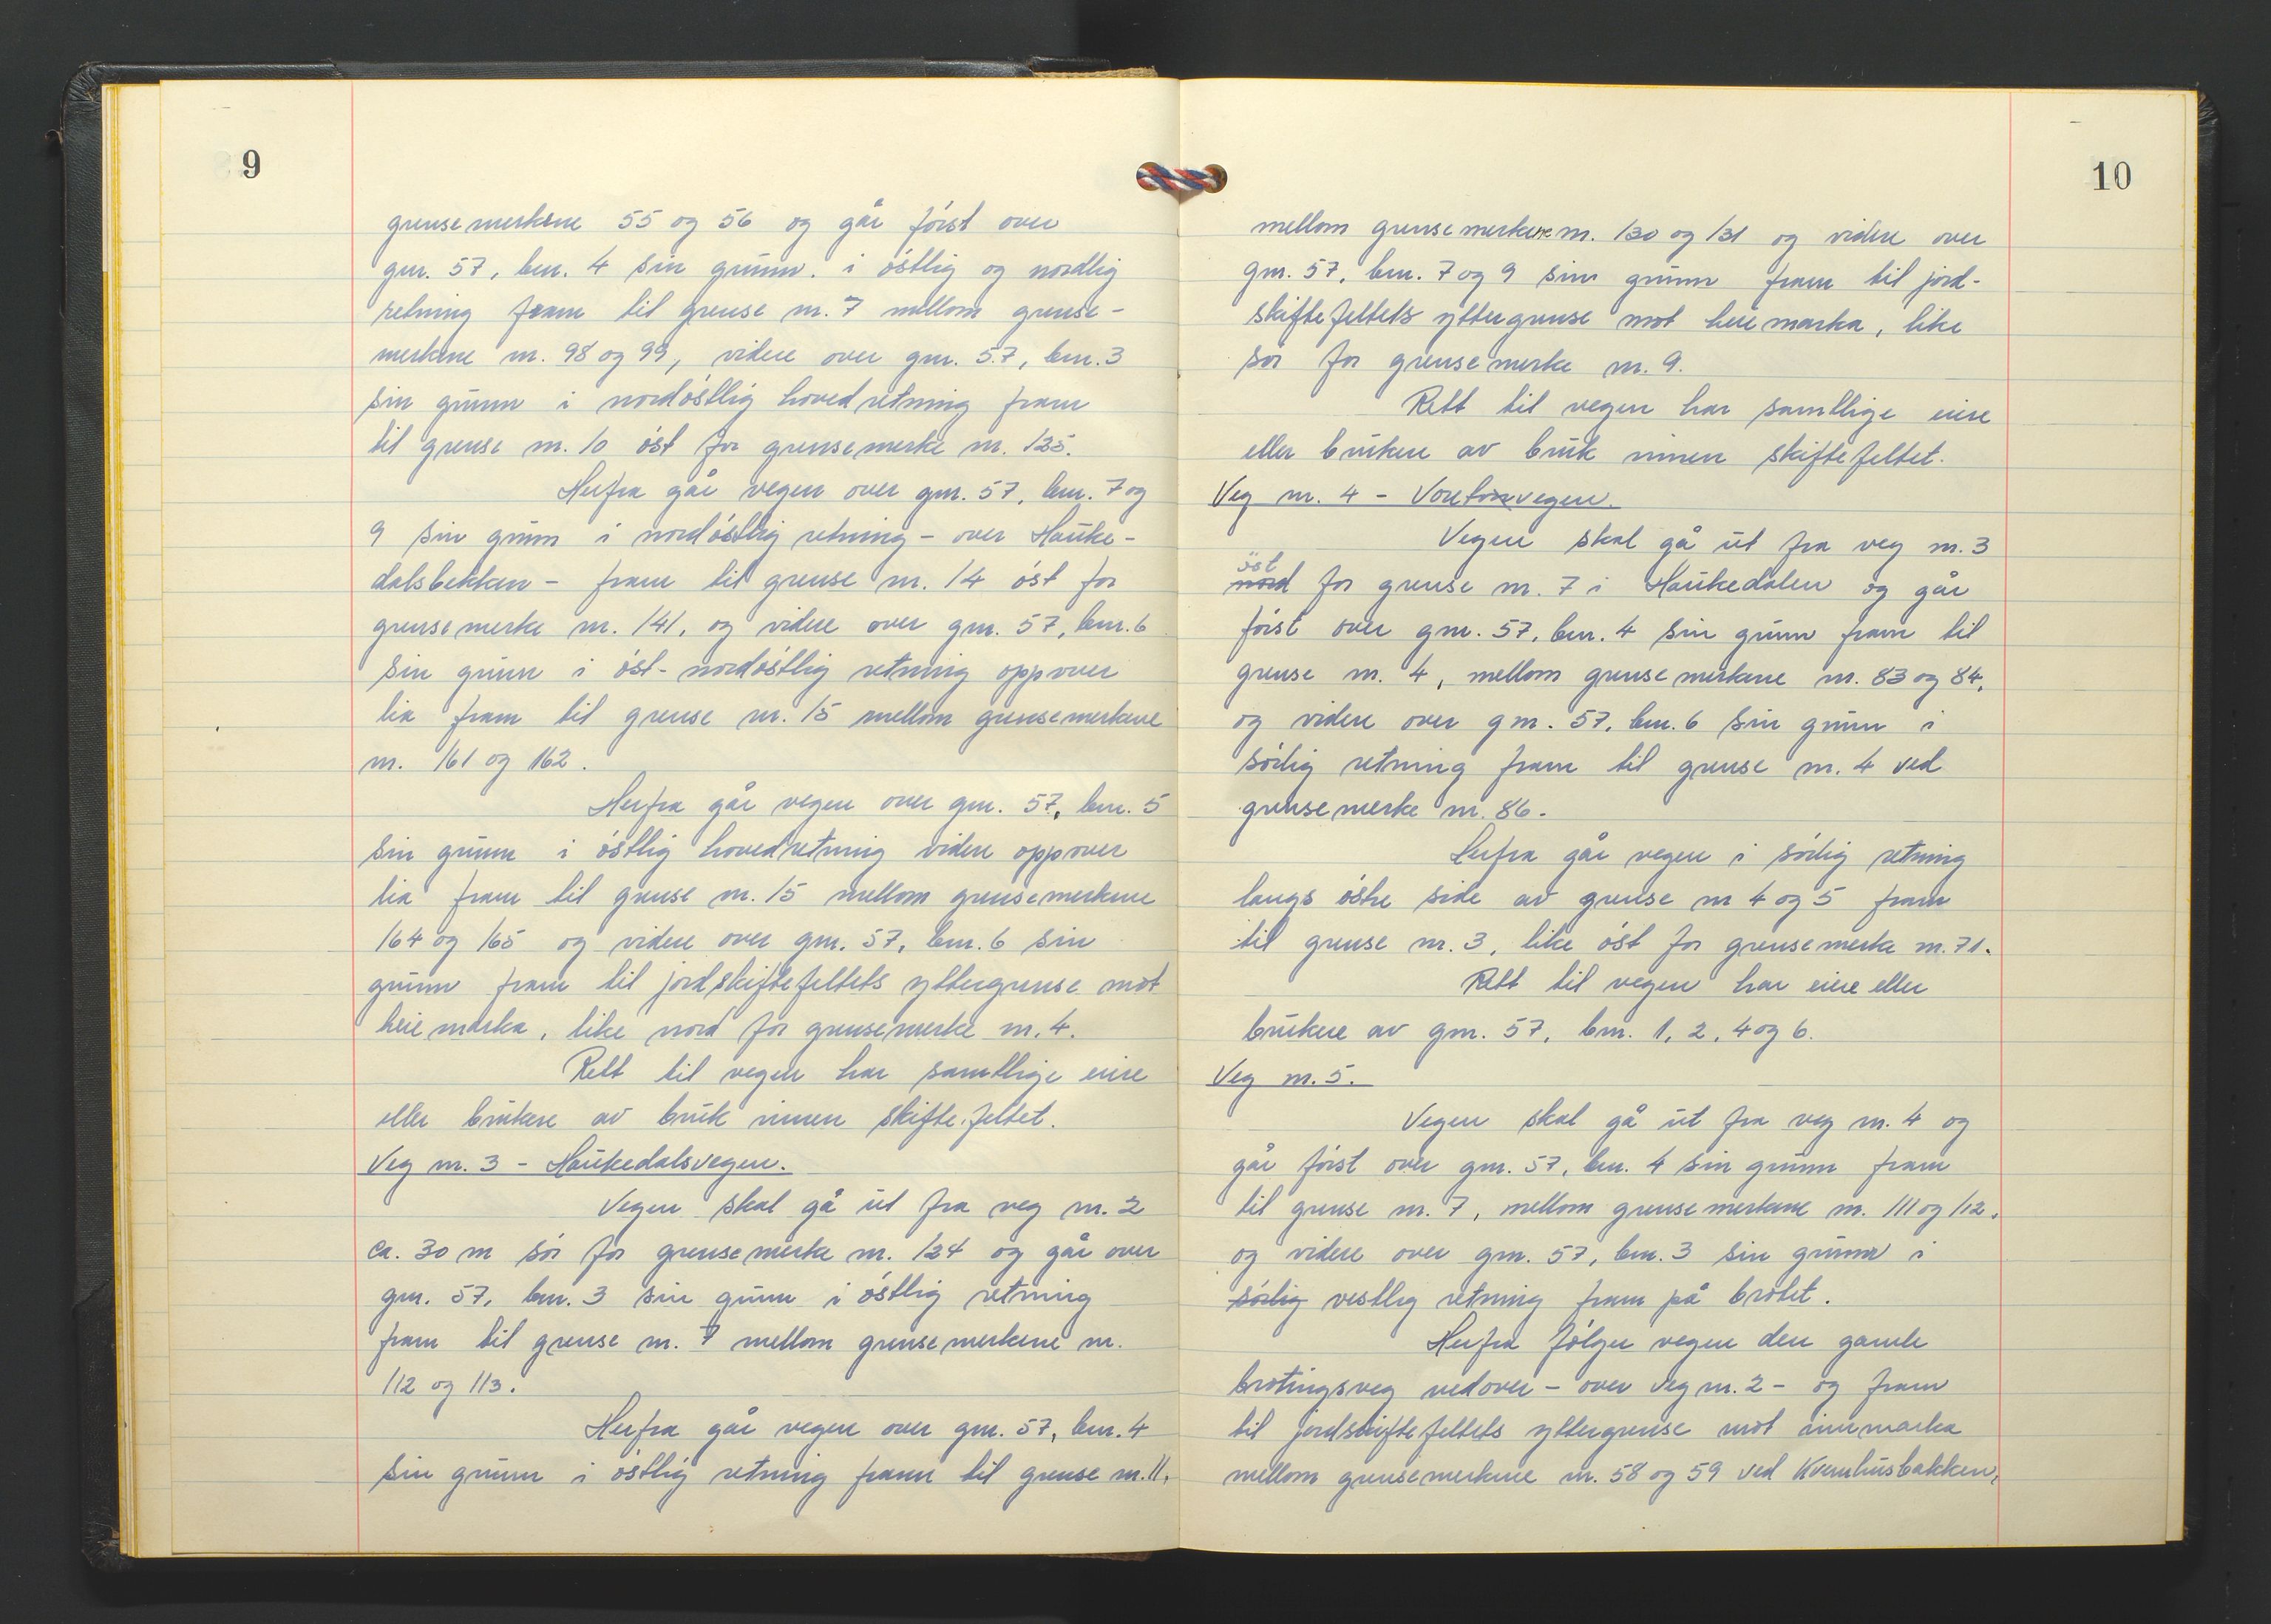 9
grensemerkene 55 og 56 og går först over
gnr. 57, bnr. 4 sin grunn i östlig og nordlig
retning fram til grense nr. 7 mellom grense-
merkene nr. 98 og 99, videre over gnr. 57, bnr. 3
sin grunn i nordöstlig hovedretning fram
til grense nr. 10 öst for grensemerke nr. 125.
Herfra går vegen over gnr. 57, bnr. 7 og
9 sin grunn i nordöstlig retning - over Hauke-
dalsbekken - fram til grense nr. 14 öst for
grensemerke nr. 141, og videre over gnr. 57, bnr. 6
sin grunn i öst-nordöstlig retning oppover
lia fram til grense nr. 15 mellom grensemerkene
nr. 161 og 162.
Herfra går vegen over gnr. 57, bnr. 5
sin grunn i östlig hovedretning videre oppover
lia fram til grense nr. 15 mellom grensemerkene
164 og 165 og videre over gnr. 57, bnr. 6 sin
grunn fram til jordskiftefeltets yttergrense mot
heiemarka, like nord for grensemerke nr. 4.
Rett til vegen har samtlige eiere
eller brukere av bruk innen skiftefeltet.
Veg nr. 3 - Haukedalsvegen.
Vegen skal gå ut fra veg nr. 2
ca. 30 m sör for grensemerke nr. 124 og går over
gnr. 57, bnr. 3 sin grunn i östlig retning
fram til grense nr. 7 mellom grensemerkene nr.
112 og 113.
Herfra går vegen over gnr. 57, bnr. 4
sin grunn i östlig retning fram til grense nr. 11,
10
mellom grensemerkene nr. 130 og 131 og videre over
gnr. 57, bnr. 7 og 9 sin grunn fram til jord-
skiftefeltets yttergrense mot heiemarka, like
sör for grensemerke nr. 9.
Rett til vegen har samtlige eiere
eller brukere av bruk innen skiftefeltet.
Veg nr. 4 - vegen.
Vegen skal gå ut fra veg nr. 3
öst
nord for grense nr. 7 i Haukedalen og går
först over gnr. 57, bnr. 4 sin grunn fram til
grense nr. 4, mellom grensemerkene nr. 83 og 84,
og videre over gnr. 57, bnr. 6 sin grunn i
sörlig retning fram til grense nr. 4 ved
grensemerke nr. 86.
Herfra går vegen i sörlig retning
langs östre side av grense nr 4 og 5 fram
til grense nr. 3, like öst for grensemerke nr. 71.
Rett til vegen har eiere eller
brukere av gnr. 57, bnr. 1, 2, 4 og 6.
Veg nr. 5.
Vegen skal gå ut fra veg nr. 4 og
går först over gnr. 57, bnr. 4 sin grunn fram
til grense nr. 7, mellom grensemerkene nr. 111 og 112,
og videre over gnr. 57, bnr. 3 sin grunn i
sörlig vestlig retning fram på brotet.
Herfra fölger vegen den gamle
brotingsveg nedover - over veg nr. 2 - og fram
til jordskiftefeltets yttergrense mot innmarka
mellom grensemerkene nr. 58 og 59 ved Kvernhusbakken,